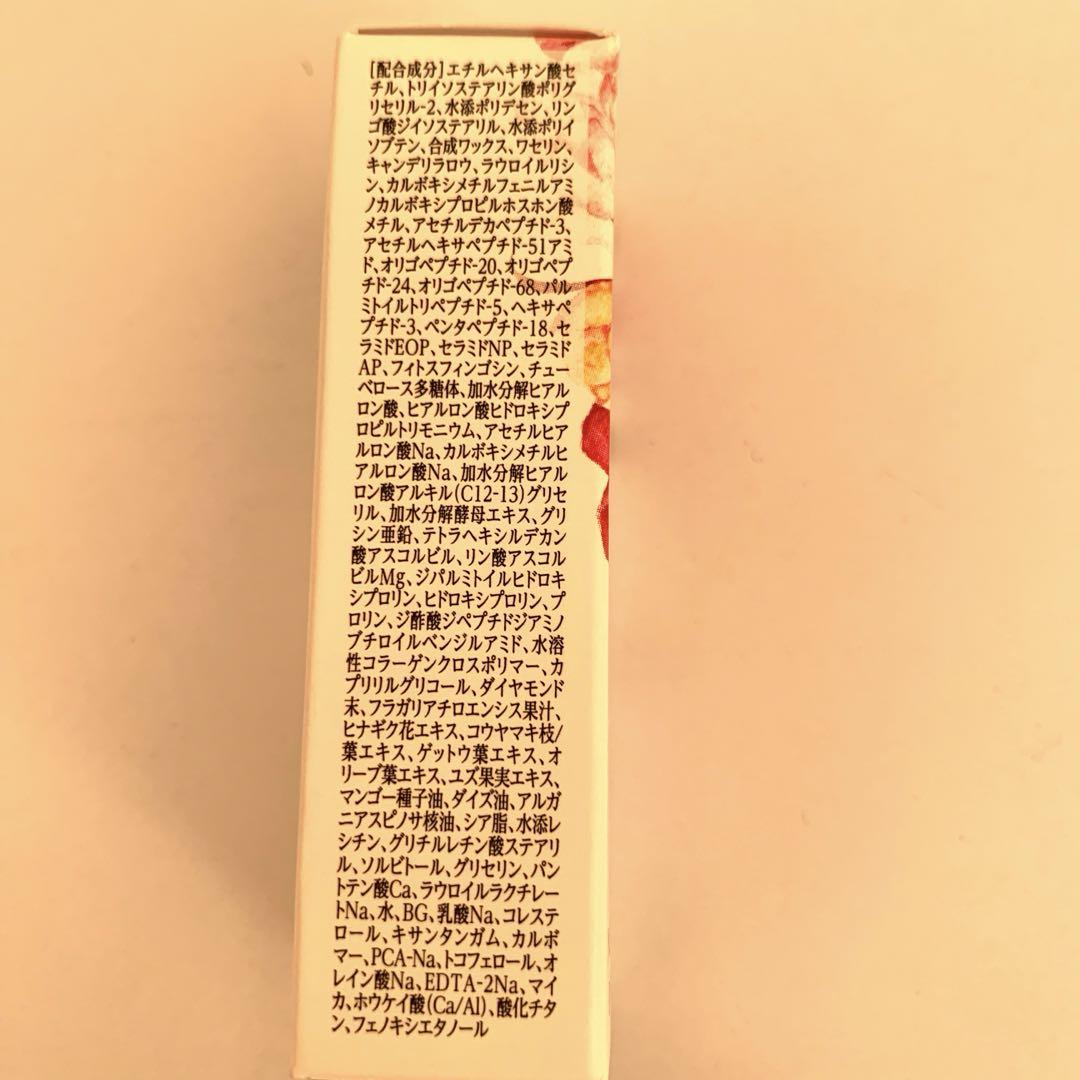 [配合成分]エチルヘキサン酸セ
チル、トリイソステアリン酸ポリグ
リセリル-2、水添ポリデセン、リン
ゴ酸ジイソステアリル、水添ポリイ
ソブテン、合成ワックス、ワセリン、
キャンデリラロウ、ラウロイルリシ
ン、カルボキシメチルフェニルアミ
ノカルボキシプロピルホスホン酸
メチル、アセチルデカペプチド-3、
アセチルヘキサペプチド-51アミ
ド、オリゴペプチド-20、オリゴペプ
チド-24、オリゴペプチド-68、パル
ミトイルトリペプチド-5、ヘキサペ
プチド-3、ペンタペプチド-18、セ
ラミドEOP、セラミドNP、セラミド
AP、フィトスフィンゴシン、チュー
ベロース多糖体、加水分解ヒアル
ロン酸、ヒアルロン酸ヒドロキシプ
ロピルトリモニウム、アセチルヒア
ルロン酸Na、カルボキシメチルヒ
アルロン酸Na、加水分解ヒアル
ロン酸アルキル(C12-13)グリセ
リル、加水分解酵母エキス、グリ
シン亜鉛、テトラヘキシルデカン
酸アスコルビル、リン酸アスコル
ビルMg、ジパルミトイルヒドロキ
シプロリン、ヒドロキシプロリン、プ
ロリン、ジ酢酸ジペプチドジアミノ
ブチロイルベンジルアミド、水溶
性コラーゲンクロスポリマー、カ
プリリルグリコール、ダイヤモンド
末、フラガリアチロエンシス果汁、
ヒナギク花エキス、コウヤマキ枝/
葉エキス、ゲットウ葉エキス、オ
リーブ葉エキス、ユズ果実エキス、
マンゴー種子油、ダイズ油、アルガ
ニアスピノサ核油、シア脂、水添レ
シチン、グリチルレチン酸ステアリ
ル、ソルビトール、グリセリン、パン
トテン酸Ca、ラウロイルラクチレー
トNa、水、BG、乳酸Na、コレステ
ロール、キサンタンガム、カルボ
マー、PCA-Na、トコフェロール、オ
レイン酸Na、EDTA-2Na、マイ
カ、ホウケイ酸(Ca/Al)、酸化チタ
ン、フェノキシエタノール